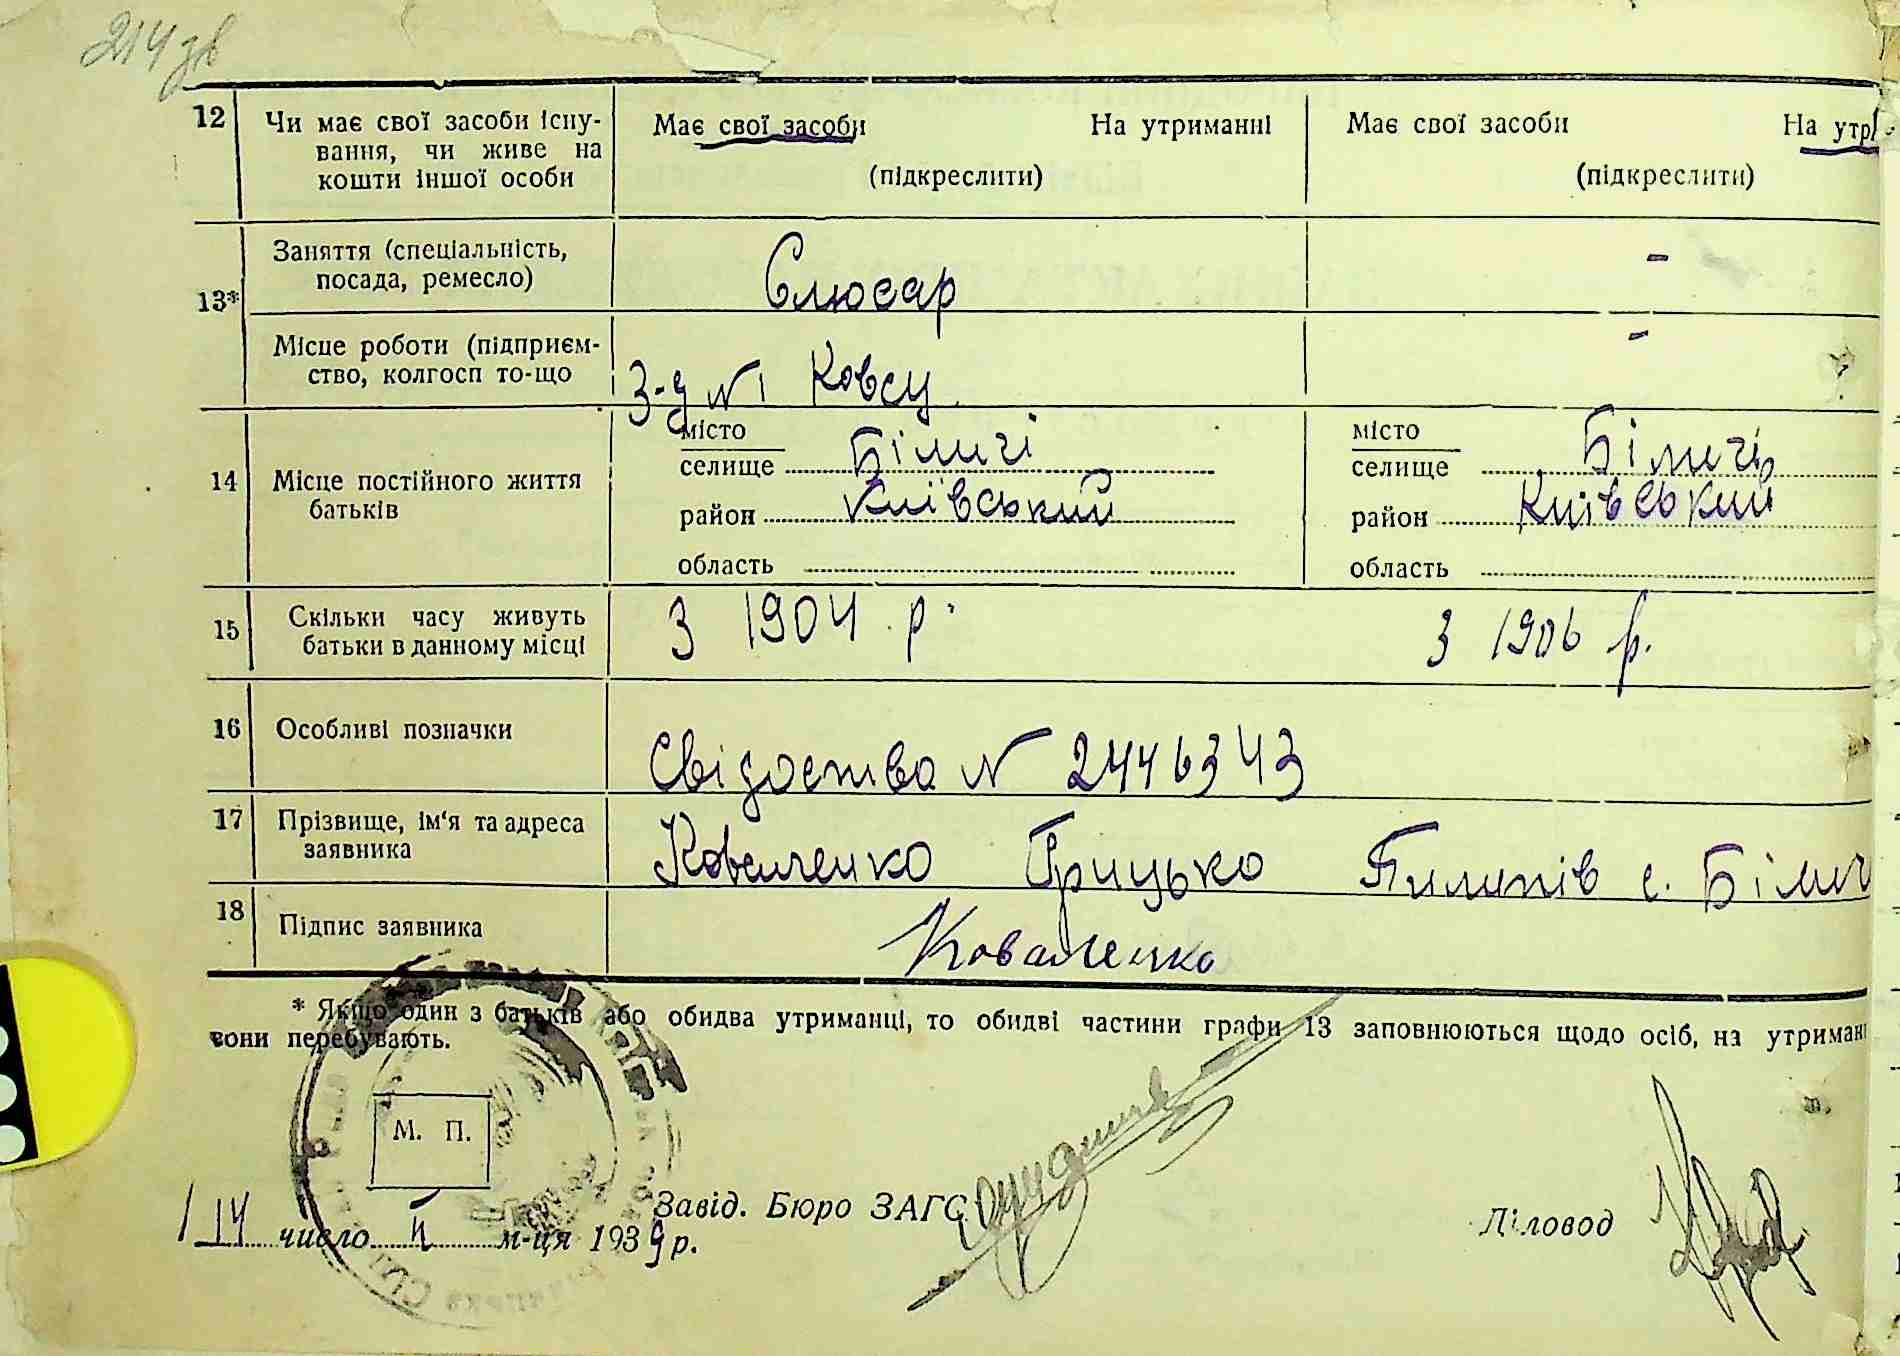 214 зв
12 Чи має свої засоби існу- Має свої засоби На утриманні Має свої засоби На утр
вання, чи живе на
кошти іншої особи (підкреслити) (підкреслити)
13* Заняття (спеціальність,
посада, ремесло) Слюсар -
Місце роботи (підприєм-
ство, колгосп то-що З-д №1 Ковсу -
14 Місце постійного життя
батьків
місто
селище Біличі
район Київський
область
місто
селище Біличі
район Київський
область
15 Скільки часу живуть
батьки в данному місці З 1904 р. З 1906 р.
16 Особливі позначки Свідоства № 2446343
17 Прізвище, ім'я та адреса
заявника Коваленко Грицько Пилипів с. Білич
18 Підпис заявника Коваленко
* Якщо один з батьків або обидва утриманці, то обидві частини графи 13 заповнюються щодо осіб, на утриман
вони перебувають.
М. П.
Завід. Бюро ЗАГС Діловод
14 число м-ця 1939 р.